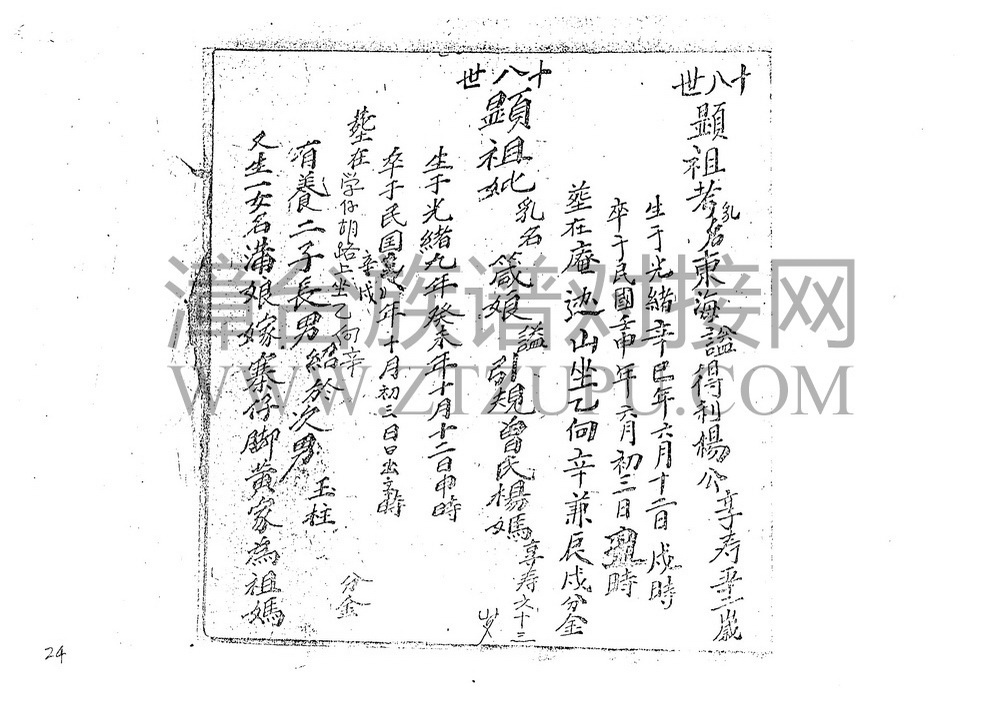 十八世
顯祖考乳名東海謚得利楊公享寿五十二歲
生于光緒辛巳年六月十二日戌時
卒于民國壬申年六月初三日時
塟在庵边山坐乙向辛兼辰戌分金
十八世
顯祖妣乳名箴娘謚引規曾氏楊媽享寿六十三歲
生于光緒九年癸未年十月十二日申時
卒于民国年十月初三日時
塟在学仔胡路上坐乙向辛辛戌分金
有養二子長男紹於次男玉柱
又生一女名蒲娘嫁寨仔脚黄家為祖媽
24
漳台族谱对接网
WWW.ZTZUPU.COM